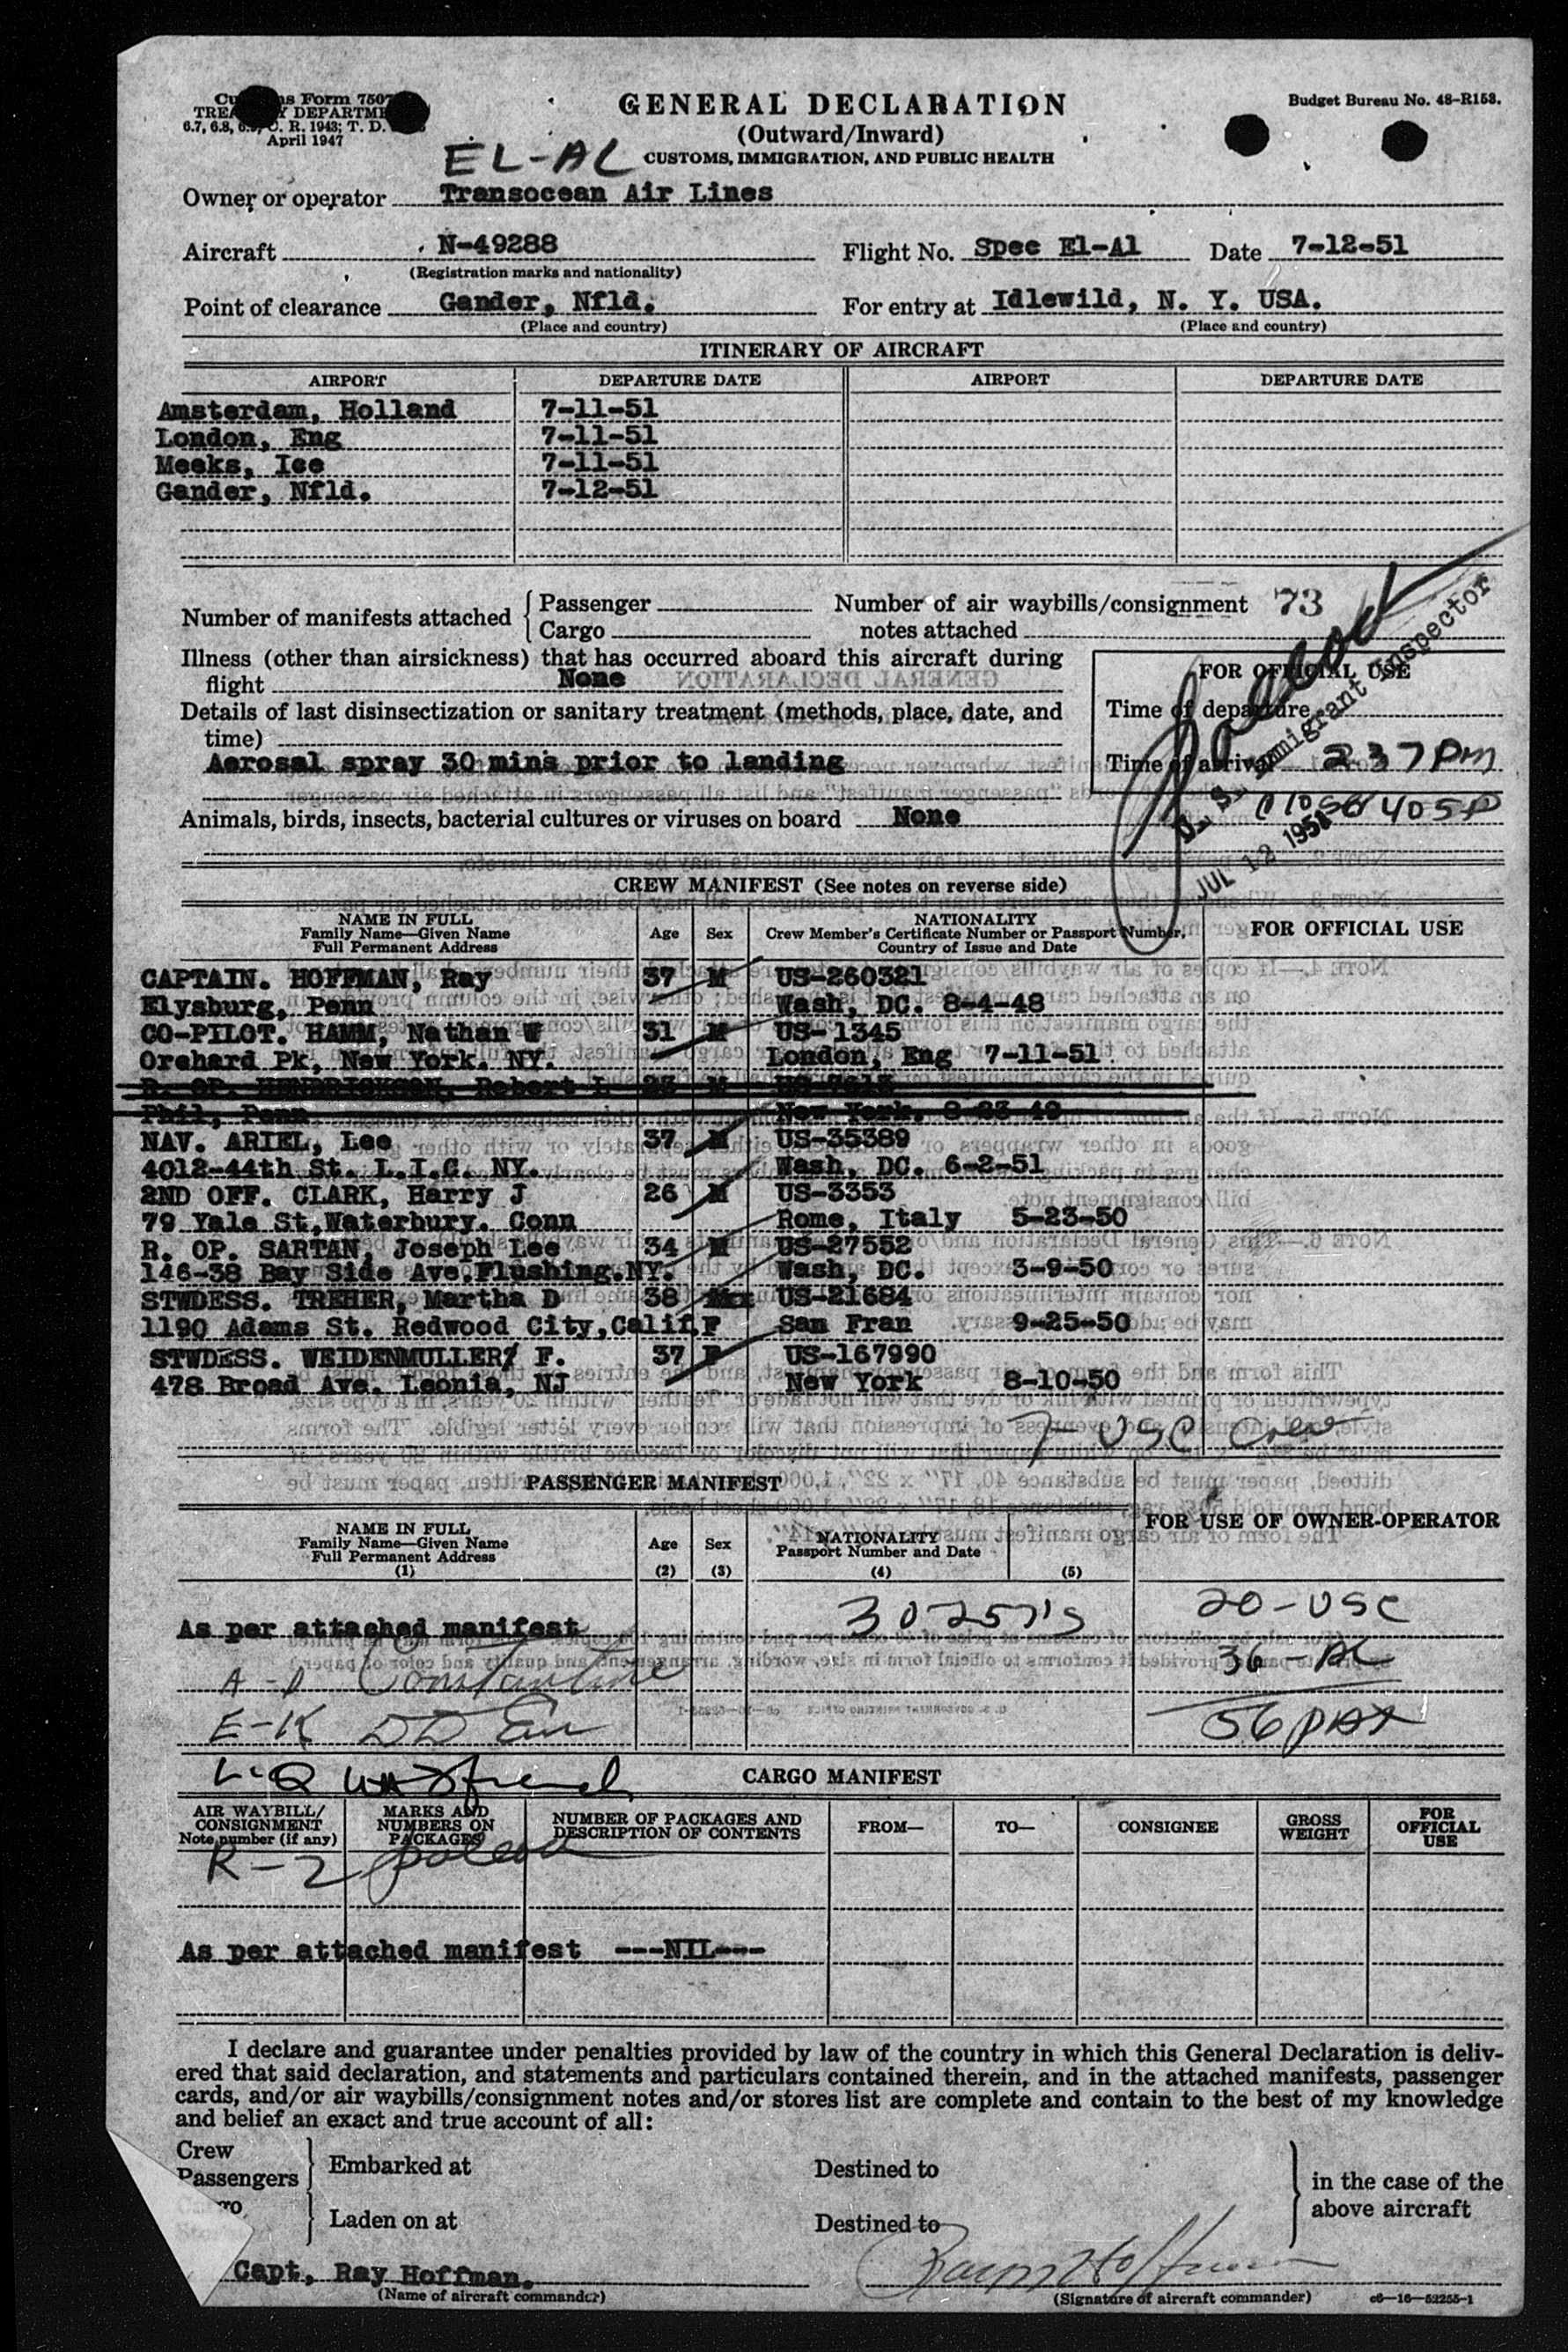 Customs Form 7507
TREASURY DEPARTMENT
6.7, 6.8, C. R. 1943; T. D.
April 1947
GENERAL DECLARATION
(Outward/Inward)
CUSTOMS, IMMIGRATION, AND PUBLIC HEALTH
Budget Bureau No. 48-R153.
EL-AL
Owner or operator Transocean Air Lines
Aircraft N-49288 Flight No. Spec El-Al Date 7-12-51
(Registration marks and nationality)
Point of clearance Gander, Nfld. For entry at Idlewild, N. Y. USA.
(Place and country) (Place and country)
ITINERARY OF AIRCRAFT
AIRPORT DEPARTURE DATE AIRPORT DEPARTURE DATE
Amsterdam, Holland 7-11-51
London, Eng 7-11-51
Meeks, Ice 7-11-51
Gander, Nfld. 7-12-51
Number of manifests attached Passenger Number of air waybills/consignment 73
Cargo notes attached
Illness (other than airsickness) that has occurred aboard this aircraft during
flight None
FOR OFFICIAL USE
Details of last disinsectization or sanitary treatment (methods, place, date, and
time)
Time of departure
Aerosal spray 30 mins prior to landing
Time of arrival 237 PM
U. S. Immigrant Inspector
JUL 12 1951
405P
Animals, birds, insects, bacterial cultures or viruses on board None
CREW MANIFEST (See notes on reverse side)
NAME IN FULL
Family Name—Given Name
Full Permanent Address
Age Sex
NATIONALITY
Crew Member's Certificate Number or Passport Number,
Country of Issue and Date
FOR OFFICIAL USE
CAPTAIN. HOFFMAN, Ray 37 M US-260321
Elysburg, Penn Wash, DC. 8-4-48
CO-PILOT. HAMM, Nathan W 31 M US-1345
Orchard Pk, New York. NY. London, Eng 7-11-51
R. OP. HENDRICKSON, Robert L 23 M
Phil, Penn New York.
NAV. ARIEL, Lee 37 M US-35389
4012-44th St. L.I.C. NY. Wash, DC. 6-2-51
2ND OFF. CLARK, Harry J 26 M US-3353
79 Yale St, Waterbury. Conn Rome, Italy 5-23-50
R. OP. SARTAN, Joseph Lee 34 M US-27552
146-38 Bay Side Ave. Flushing. NY. Wash, DC. 3-9-50
STWDESS. TREHER, Martha D 38 US-21684
1190 Adams St. Redwood City, Calif. F San Fran 9-25-50
STWDESS. WEIDENMULLER, F. 37 F US-167990
478 Broad Ave. Leonia, NJ New York 8-10-50
7- USC Crew
PASSENGER MANIFEST
NAME IN FULL
Family Name—Given Name
Full Permanent Address
(1)
Age
(2)
Sex
(3)
NATIONALITY
Passport Number and Date
(4) (5)
FOR USE OF OWNER-OPERATOR
As per attached manifest
20-USC
A-D Constantine
36-AL
E-K
56 pax
L-Q
CARGO MANIFEST
AIR WAYBILL/
CONSIGNMENT
Note number (if any)
MARKS AND
NUMBERS ON
PACKAGES
NUMBER OF PACKAGES AND
DESCRIPTION OF CONTENTS
FROM— TO— CONSIGNEE
GROSS
WEIGHT
FOR
OFFICIAL
USE
R-Z
As per attached manifest ---NIL---
I declare and guarantee under penalties provided by law of the country in which this General Declaration is deliv-
ered that said declaration, and statements and particulars contained therein, and in the attached manifests, passenger
cards, and/or air waybills/consignment notes and/or stores list are complete and contain to the best of my knowledge
and belief an exact and true account of all:
Crew
Passengers
Embarked at Destined to
in the case of the
above aircraft
Laden on at Destined to
Capt, Ray Hoffman.
(Name of aircraft commander)
(Signature of aircraft commander)
c6—16—52255-1